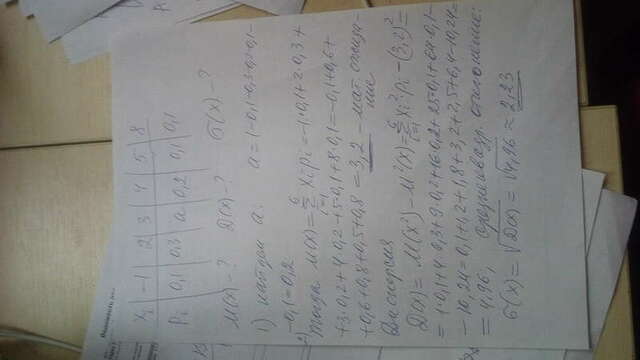 xi | -1 | 2 | 3 | 4 | 5 | 8
Pi | 0,1 | 0,3 | a | 0,2 | 0,1 | 0,1
M(x)-? D(x)-? σ(x)-?
1) найдем a. a=1-0,1-0,3-0,2-0,1-
-0,1=0,2
2) Тогда M(x)=∑ xi pi=-1·0,1+2·0,3+
+3·0,2+4·0,2+5·0,1+8·0,1=-0,1+0,6+
+0,6+0,8+0,5+0,8=3,2 - мат. ожида-
ние
Дисперсия
D(x)= M(x²)-M²(x)=∑ xi²·pi-(3,2)²=
=1·0,1+4·0,3+9·0,2+16·0,2+25·0,1+64·0,1-
-10,24=0,1+1,2+1,8+3,2+2,5+6,4-10,24=
=4,96, среднеквадр. отклонение:
σ(x)=√D(x)=√4,96≈2,23